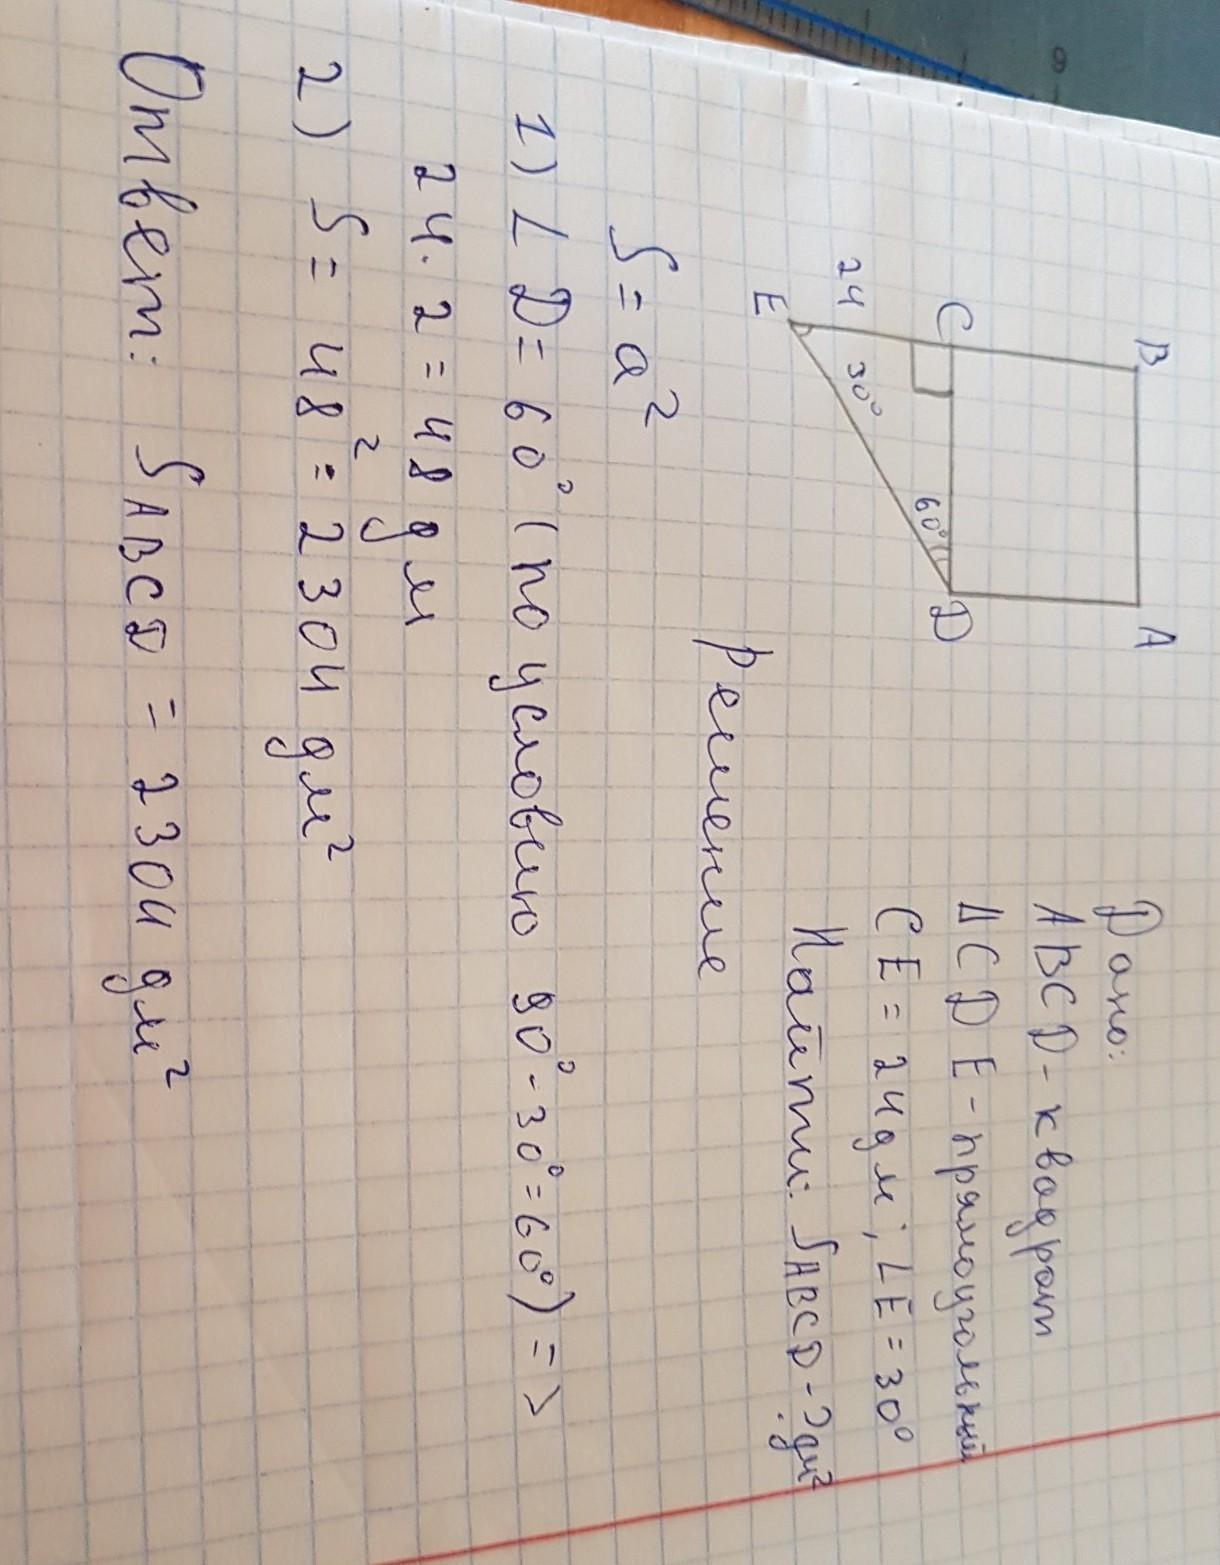 B
A
C
D
60°
30°
24
E
Дано:
ABCD - квадрат
ΔCDE - прямоугольный
CE = 24 дм; ∠E = 30°
Найти: S ABCD - ? дм²
Решение
S = a²
1) ∠D = 60° (по условию 90° - 30° = 60°) =>
24 · 2 = 48 дм
2) S = 48² = 2304 дм²
Ответ: S ABCD = 2304 дм²
9